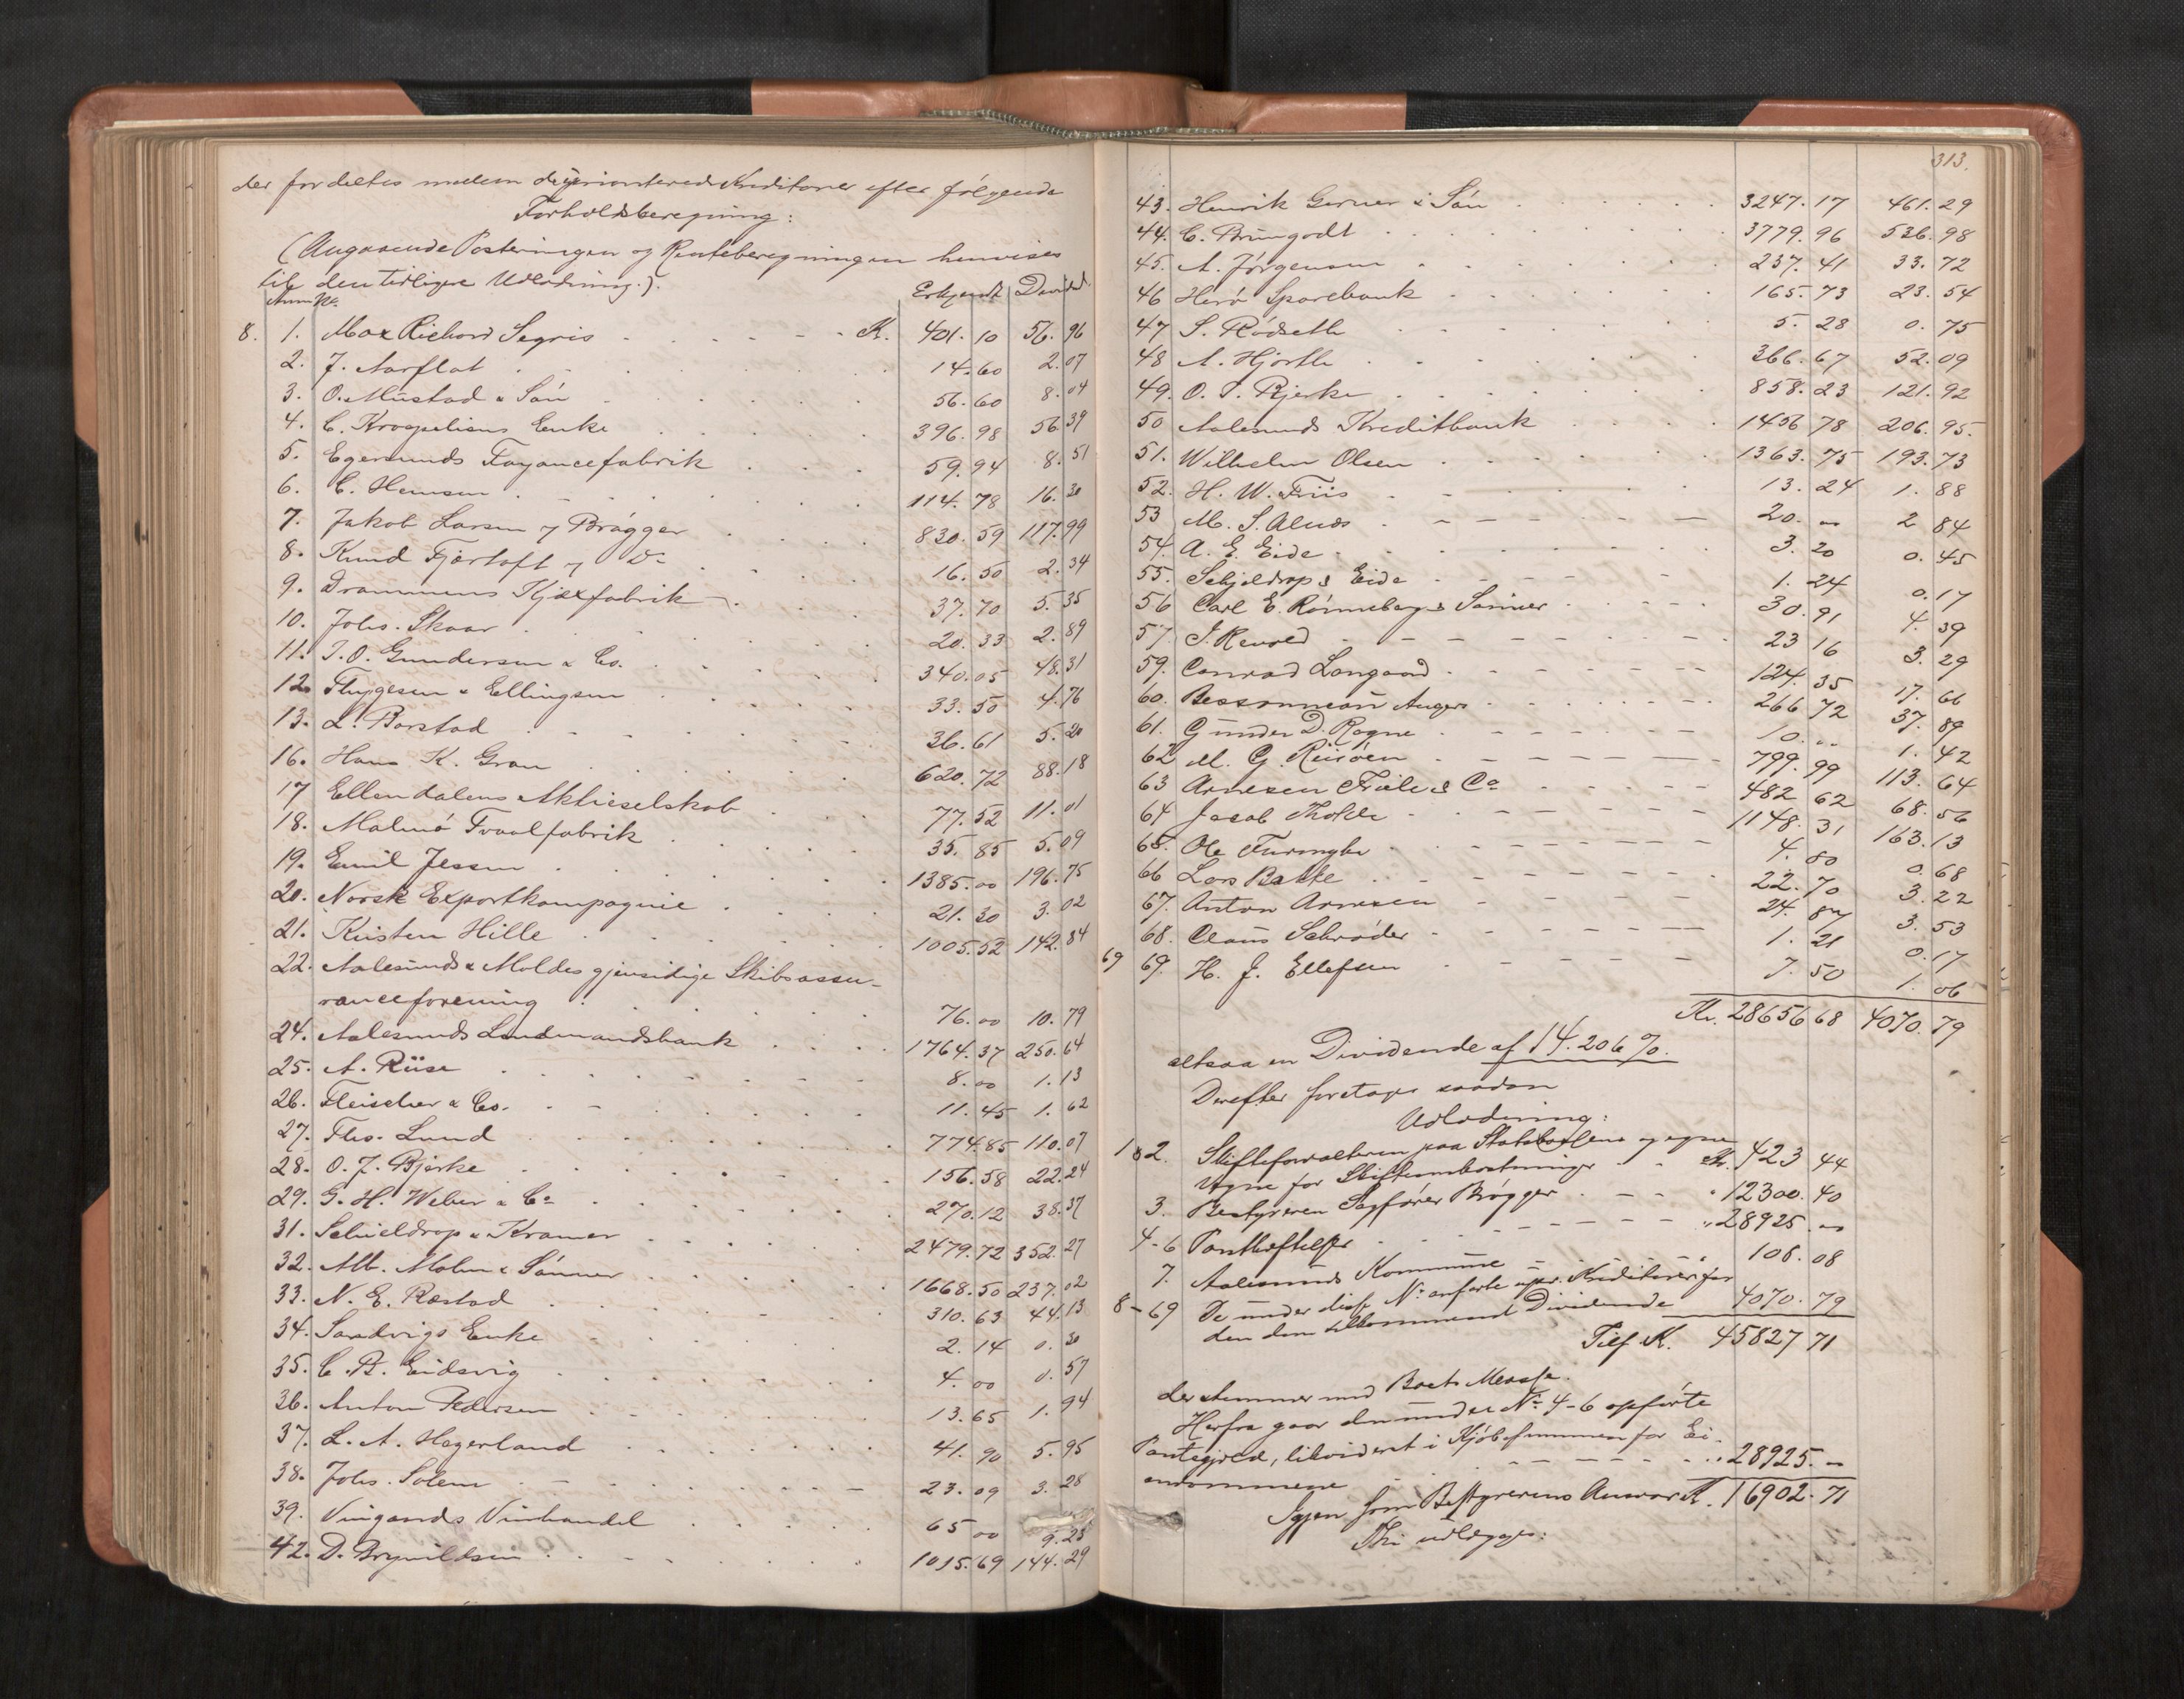 der fordeltes mellem de uprioriterede Kreditorer efter følgende
Forholdsberegning:
(Angaaende Posteringen og Renteberegningen henvises
til den tidligere Udlodning.).
Anm. No. Erkjendt Dividend
8. 1. Max Richard Segris K. 401.10 56.96
2. J. Aarflot 14.60 2.07
3. O. Mustad & Søn 56.60 8.04
4. C. Kroepeliens Enke 396.98 56.39
5. Egersunds Fayancefabrik 59.94 8.51
6. C. Hemsen 114.78 16.30
7. Jakob Larsen v/ Brøgger 830.59 117.99
8. Knud Fjørtoft v/ Do 16.50 2.34
9. Drammens Kjæxfabrik 37.70 5.35
10. Johs. Skaar 20.33 2.89
11. J. O. Gundersen & Co. 340.05 48.31
12. Thygesen & Ellingsen 33.50 4.76
13. L. Barstad 36.61 5.20
16. Hans K. Gran 620.72 88.18
17 Ellendalens Aktieselskab 77.52 11.01
18. Malmö Tvaalfabrik 35.85 5.09
19. Emil Jessen 1385.00 196.75
20. Norsk Exportkompagnie 21.30 3.02
21. Kristen Hille 1005.52 142.84
22. Aalesunds & Moldes gjensidige Skibsassu-
ranceforening 76.00 10.79
24. Aalesunds Landmandsbank 1764.37 250.64
25. A. Riise 8.00 1.13
26. Fleischer & Co. 11.45 1.62
27. Ths. Lund 774.85 110.07
28. O. J. Bjerke 156.58 22.24
29. G. H. Weber & Co 270.12 38.37
31. Schieldrop & Kramer 2479.72 352.27
32. Alb. Malm & Sønner 1668.50 237.02
33. N. E. Ræstad 310.63 44.13
34. Sandvigs Enke 2.14 0.30
35. C. B. Eidsvig 4.00 0.57
36. Anton Pedersen 13.65 1.94
37. L. A. Hagerland 41.90 5.95
38. Johs. Solem 23.09 3.28
39. Vingaards Vinhandel 65 00 9.23
42. D. Brynildsen 1015.69 144.29
313.
43. Henrik Gerner & Søn 3247.17 461.29
44. C. Brungodt 3779.96 536.98
45. A. Jørgensen 237.41 33.72
46 Herø Sparebank 165.73 23.54
47 S. Rødseth 5.28 0.75
48 A. Hjorth 366.67 52.09
49. O. J. Bjerke 858.23 121.92
50 Aalesunds Kreditbank 1456 78 206.95.
51. Wilhelm Olsen 1363.75 193.73
52. H. W. Friis 13.24 1.88
53 M. S. Alnæs 20. „ 2 84
54. A. E. Eide 3.20 0.45
55. Schjeldrop & Eide 1.24 0.17
56 Carl E. Rønneberg & Sønner 30.91 4.39
57. J. Revold 23 16 3.29
59. Conrad Langaard 124.35 17.66
60. Bessonneau Angers 266 72 37.89
61. Gunder D. Rogne 10. „ 1.42
62 M. G. Reisøen 799.99 113.64
63 Arnesen Friele & Co 482 62 68.56
64 Jacob Thoble 1148.31 163.13
65. Ole Furmyhr 4.80 0.68
66 Lars Bakke 22.70 3.22
67. Anton Arnesen 24.87 3.53
68. Claus Schrøder 1.21 0.17
69 69. H. J. Ellefsen 7.50 1.06
Kr. 28656 68 4070.79
altsaa en Dividende af 14.206%.
Derefter foretages saadan
Udlodning:
1 & 2. Skifteforvalteren paa Statskassens og egne
Vegne for Skifteomkostninger Kr. 423 44
3. Bestyreren Sagfører Brøgger " 12300.40
4-6 Panthefteler " 28925. „
7. Aalesunds Kommune " 108.08
8-69 De under disse No anførte upr. Kreditorer for
den dem tilkommende Dividende 4070.79
Tils. K. 45827 71
der stemmer med Boets Masse.
Herfra gaar den under No 4-6 opførte
Pantegjæld, likvideret i Kjøbesummen for Ei-
endommene " 28925. „
Igjen som Bestyrerens Ansvar K. 16902.71
Thi udlægges: